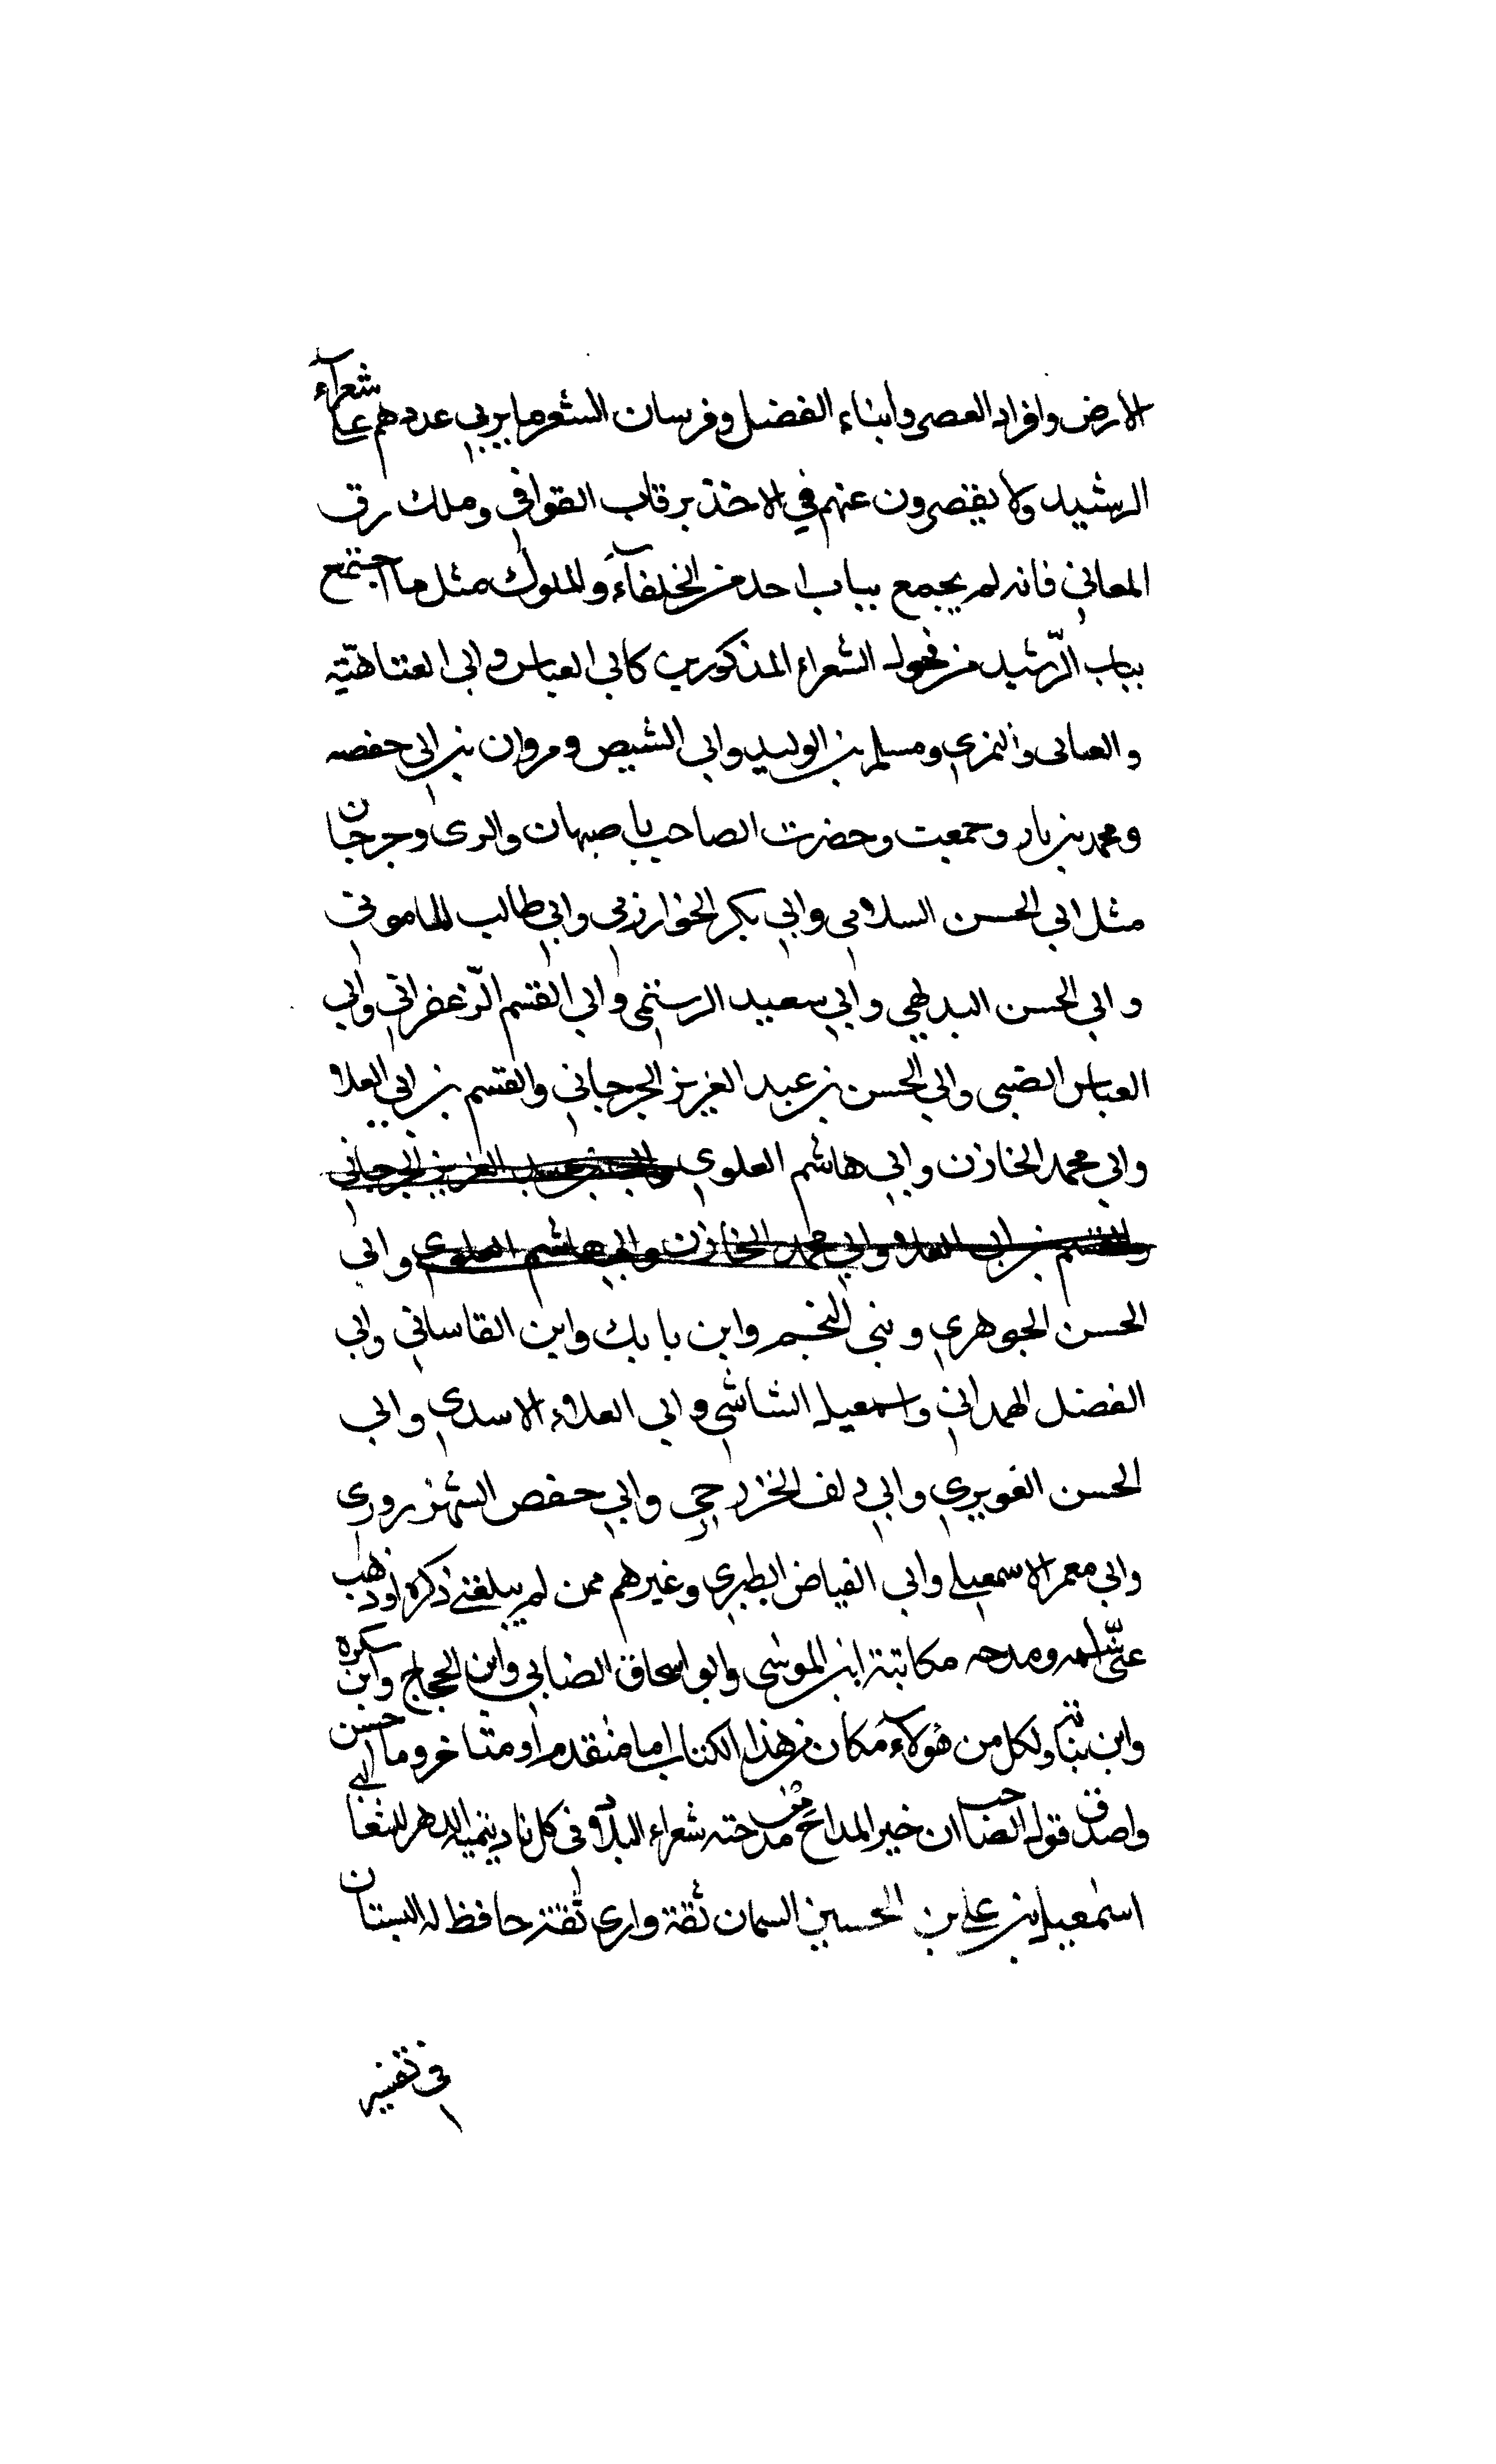 الارض وافراد العصر وابناء الفضل وفرسان الشعر ما يربي عددهم على شعرآء
الرشيد ولا يقصرون عنهم في الاخذ برقاب القوافي وملك رق
المعاني فانه لم يجمع بباب احد من الخلفآء والملوك مثل ما اجتمع
بباب الرّشيد من فحول الشعراء المذكورين كابي العباس وابي العتاهيّة
والعتابى والنمري ومسلم بن الوليد وابي الشيص ومروان بن ابي حفصه
ومحمد بن ... وجمعت وحضرت الصاحب باصبهان والرى وجرجان
مثل ابي الحسن السلامي وابي بكر الخوارزمي وابي طالب المامونى
وابي الحسن البديهي وابي سعيد الرستمى وابي القسم الزّعفراني وابي
العباس الضبى وابي الحسن بن عبد العزيز الجرجاني والقسم بن ابي العلا
وابي محمد الخازن وابي هاشم العلوي وابي الحسن بن عبد العزيز الجرجاني
والقسم بن ابي العلا وابي محمد الخازن وابي هاشم العلوي وابي
الحسن الجوهري وبني المنجم وابن بابك وابن القاساني وابي
الفضل الهمداني واسمعيل الشاشي وابي العلاء الاسدي وابي
الحسن الغويري وابي دلف الخزرجي وابي حفص الشهرزوري
وابي معمر الاسمعيلي وابي الفياض الطبري وغيرهم ممن لم يبلغني ذكره او ذهب
عنّي اسمه ومدحه مكاتبة ابن الموسى وابو اسحاق الصابي وابن الحجاج وابن سكره
وابن نباته ولكل من هولآء مكان من هذا الكتاب اما متقدم او متاخر وما احسن
واصدق قول الصاحب ان خير المداح من مدحته شعراء البلاد في كل ناد ينميه الدهر للثعالبي
اسمعيل بن علي بن الحسين السمان ثقة واري ثقة حافظ له البستان
في تفسير